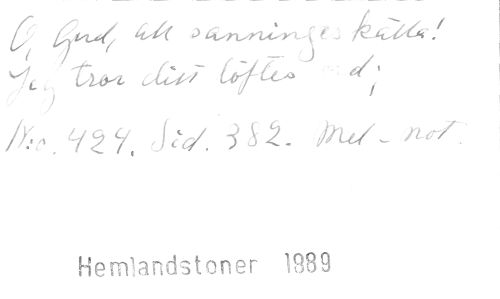 O, Gud, all sanningens källa!
Jag tror ditt löftes ord;
N:o. 424. Sid. 382. Mel - not.
Hemlandstoner 1889